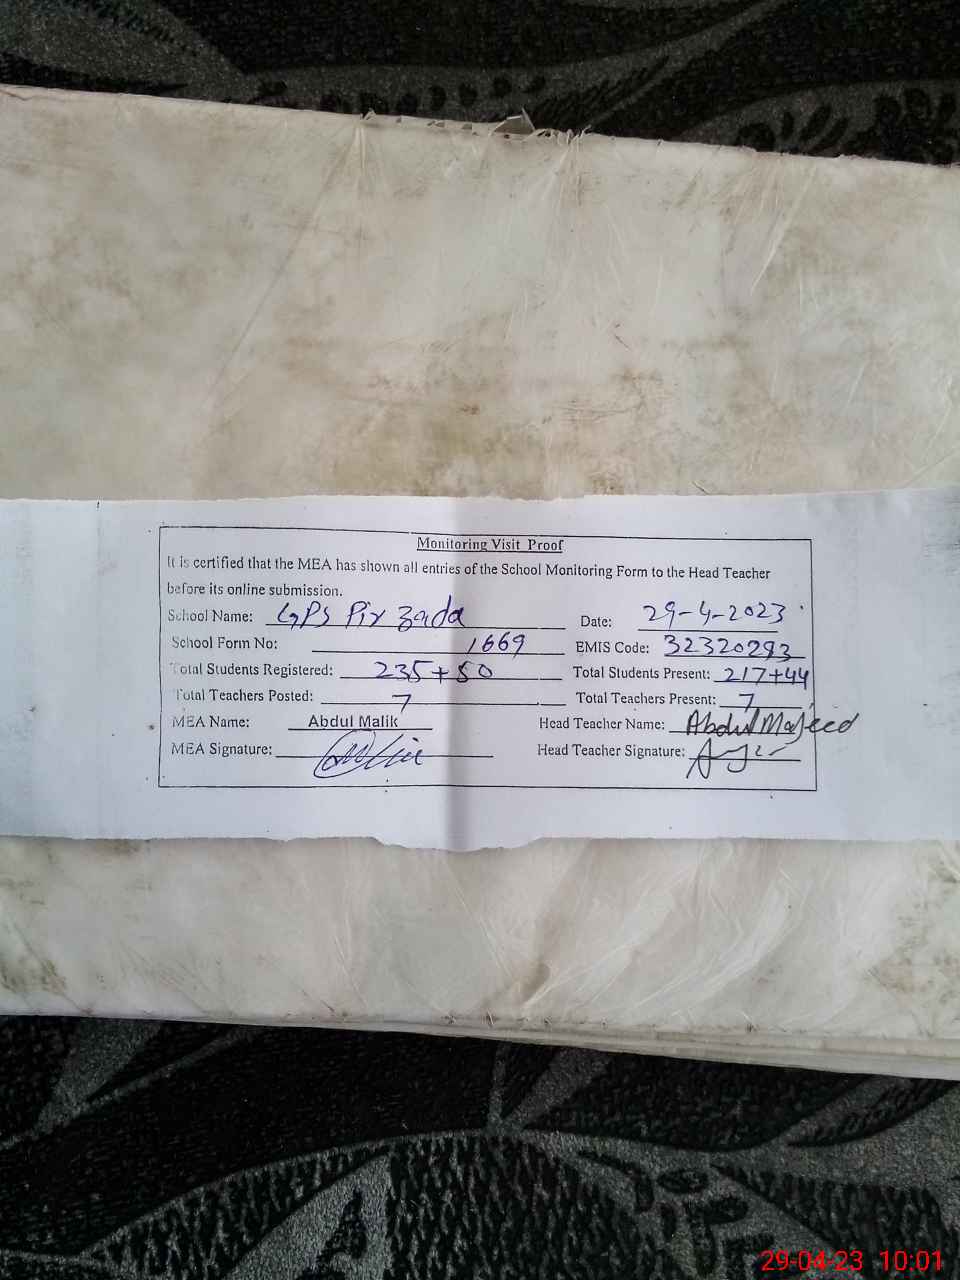 Monitoring Visit Proof
It is certified that the MEA has shown all entries of the School Monitoring Form to the Head Teacher
before its online submission.
School Name: GPS Pir Zada Date: 29-4-2023
School Form No: 1669 EMIS Code: 32320293
Total Students Registered: 235+50 Total Students Present: 217+44
Total Teachers Posted: 7 Total Teachers Present: 7
MEA Name: Abdul Malik Head Teacher Name: Abdul Majeed
MEA Signature: Head Teacher Signature:
29-04-23 10:01